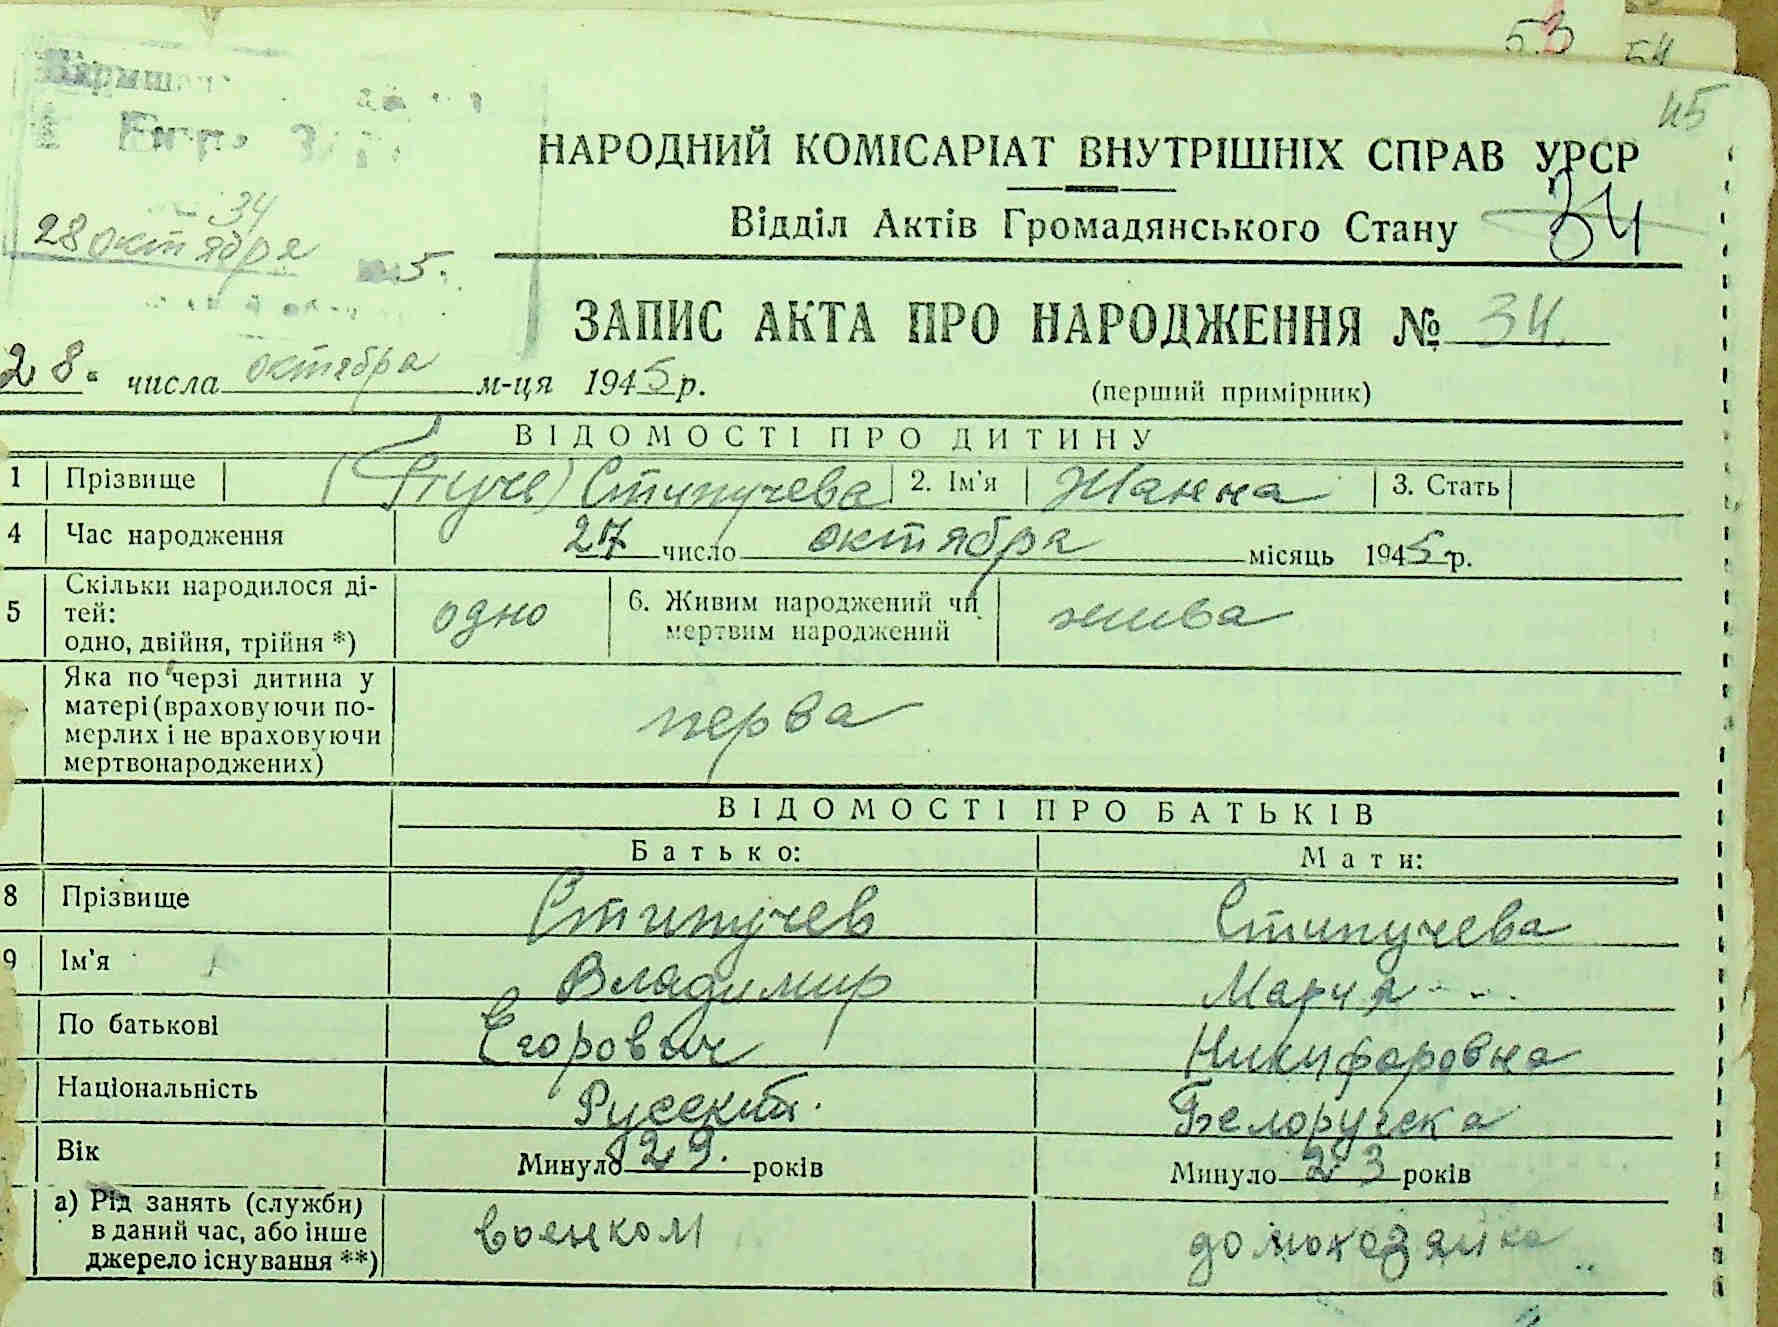 53
54
45
НАРОДНИЙ КОМІСАРІАТ ВНУТРІШНІХ СПРАВ УРСР
34
Відділ Актів Громадянського Стану 34
28 октября 5.
ЗАПИС АКТА ПРО НАРОДЖЕННЯ № 34.
28. числа октября м-ця 1945 р.
(перший примірник)
ВІДОМОСТІ ПРО ДИТИНУ
1 Прізвище Стипучева 2. Ім'я Жанна 3. Стать
4 Час народження 27 число октября місяць 1945 р.
5 Скільки народилося ді-
тей:
одно, двійня, трійня *) одно 6. Живим народжений чи
мертвим народжений жива
Яка по черзі дитина у
матері (враховуючи по-
мерлих і не враховуючи
мертвонароджених) перва
ВІДОМОСТІ ПРО БАТЬКІВ
Батько: Мати:
8 Прізвище Стипучев Стипучева
9 Ім'я Владимир Мария
По батькові Егорович Никифоровна
Національність Русский. Белоруска
Вік Минуло 29. років Минуло 23 років
а) Рід занять (служби)
в даний час, або інше
джерело існування **) военком домохазяйка